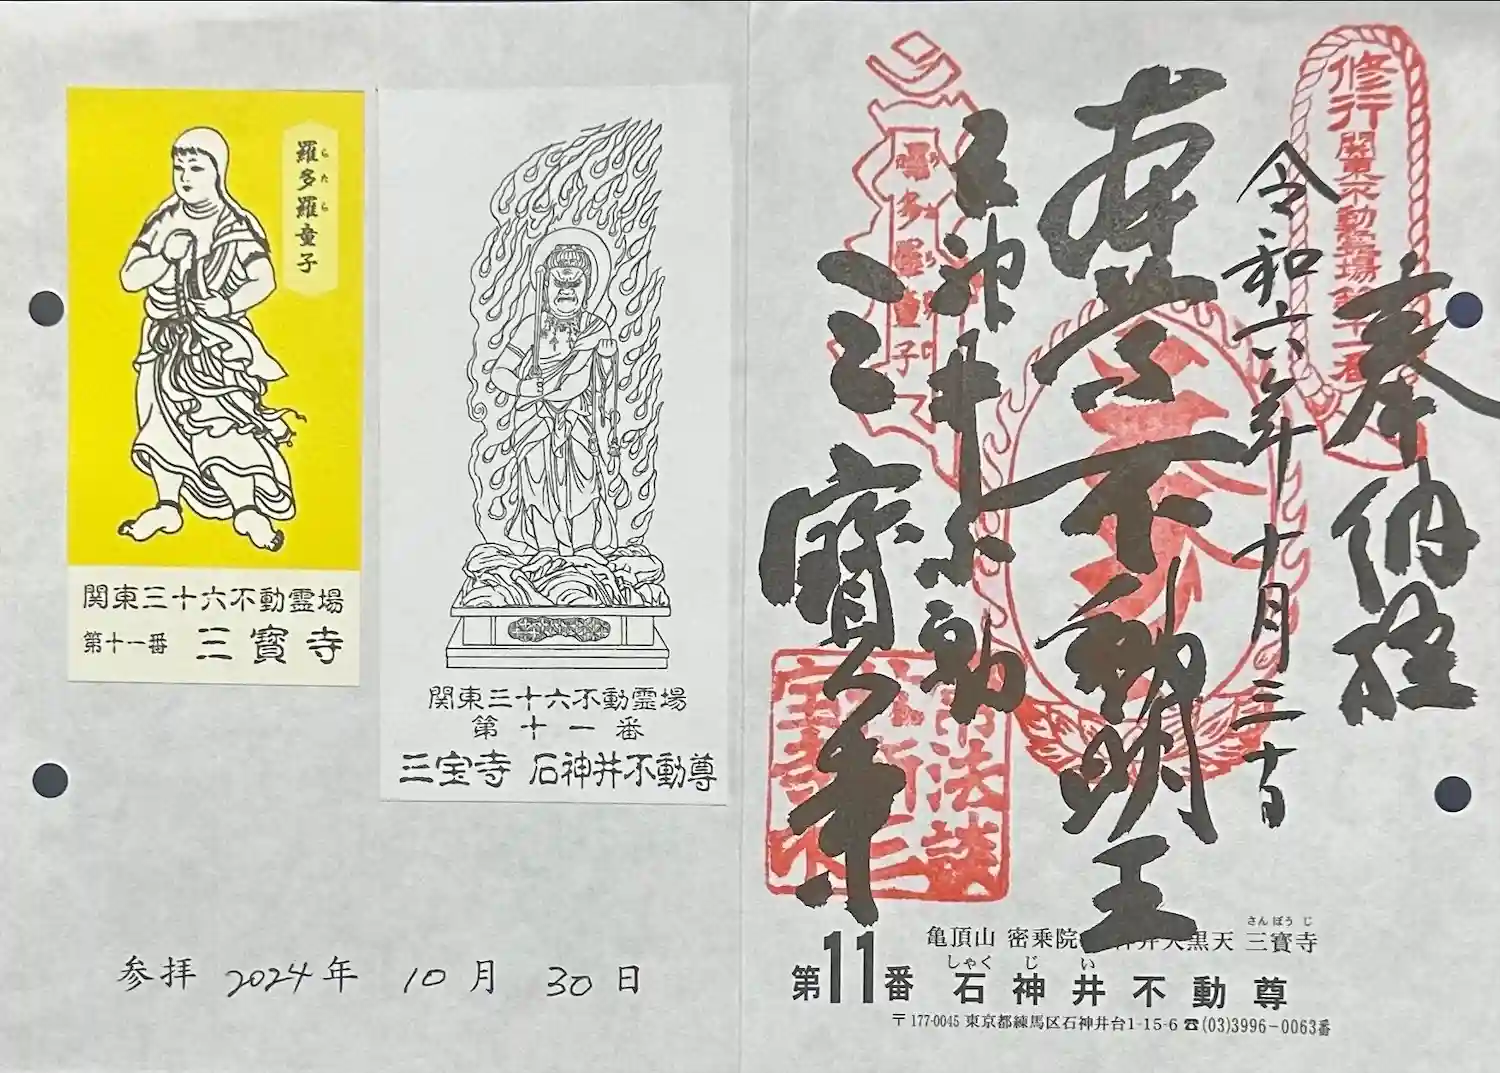 羅多羅童子
らたら
関東三十六不動霊場
第十一番 三寳寺
関東三十六不動霊場
第十一番
三宝寺 石神井不動尊
参拝 2024年 10月 30日
奉納経
令和六年十月三十日
不動明王
石神井不動
三寳寺
修行
関東不動霊場第十一番
多羅童子
亀頂山 密乗院
大黒天 三寳寺
さんぽうじ
第11番 石神井不動尊
しゃくじい
〒177-0045 東京都練馬区石神井台1-15-6 ☎(03)3996-0063番